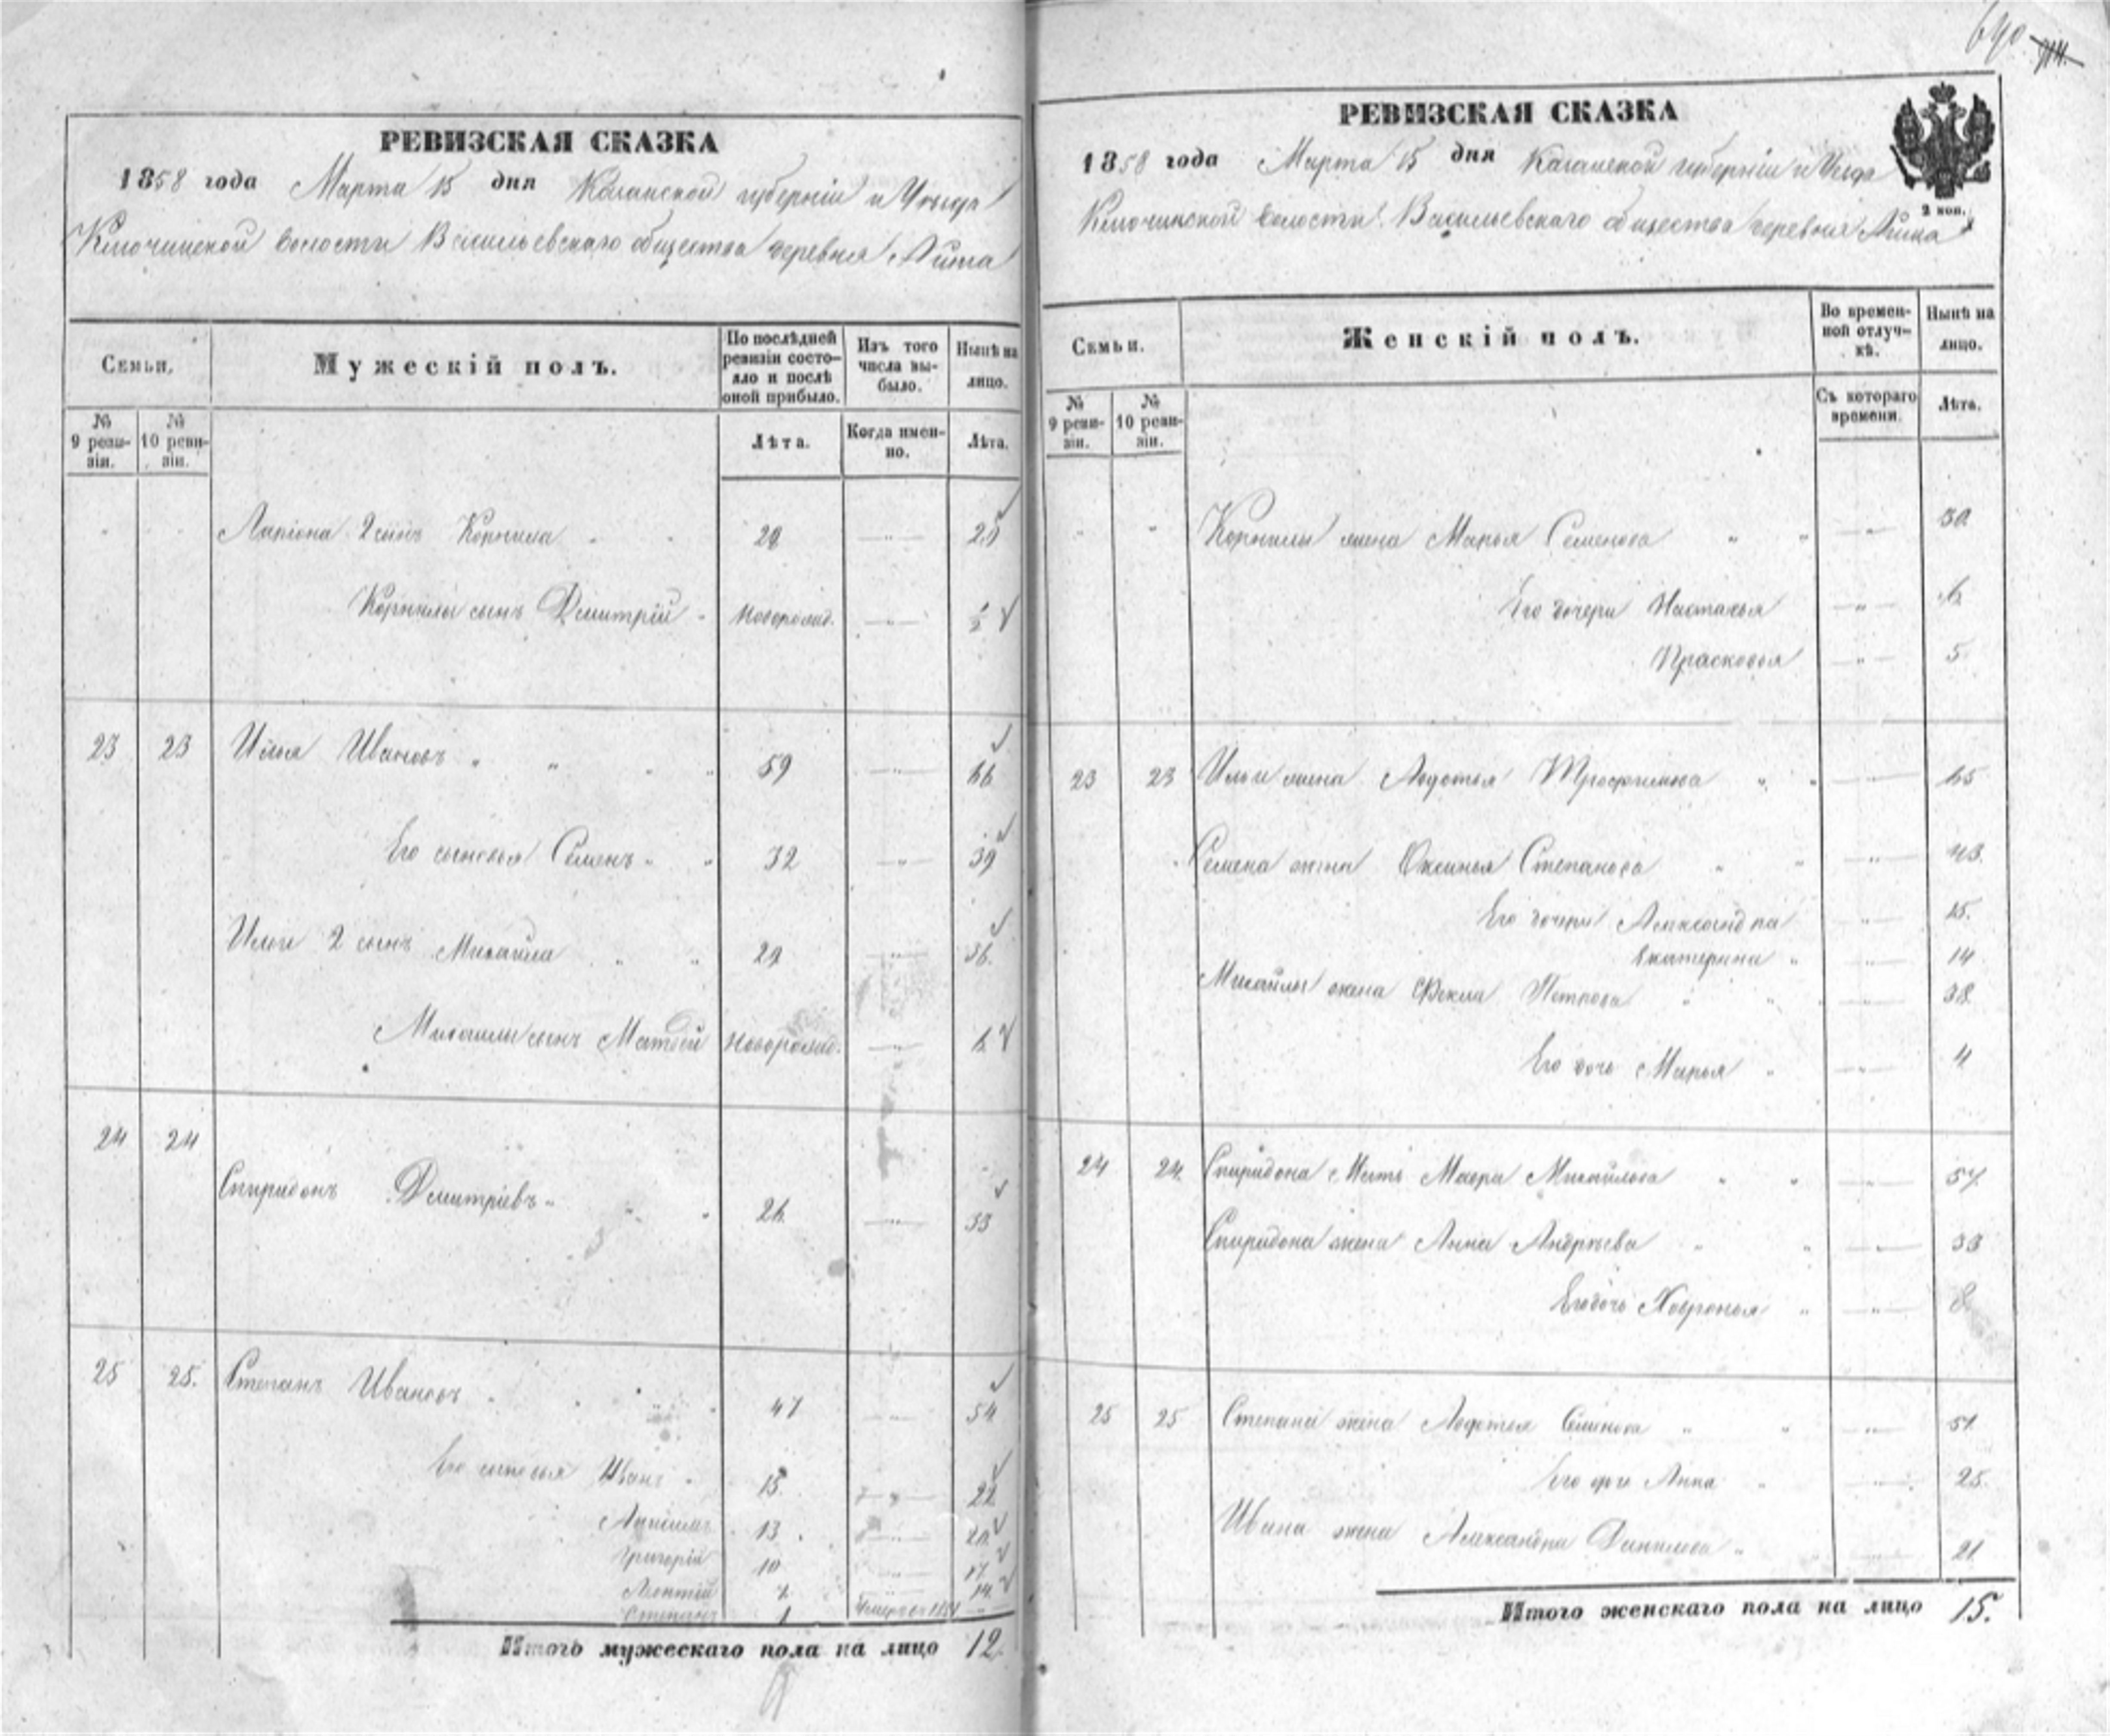 690
РЕВИЗСКАЯ СКАЗКА
1858 года Марта 15 дня Казанской губерніи и Уезда
Ключинской волости Васильевскаго общества деревня
Семьи.
Мужескій полъ.
По послѣдней ревизіи состо-
яло и послѣ
оной прибыло.
Изъ того
числа вы-
было.
Нынѣ на
лицо.
№
9 реви-
зіи.
№
10 реви-
зіи.
Лѣта.
Когда имен-
но.
Лѣта.
Ларіона 2 сынъ Корнила
Корнилы сынъ Дмитрій Новорожд. ½
23 23 Илья Ивановъ 59 66
Его сыновья Семенъ 32 39
Ильи 2 сынъ Михайла 29 36.
Михайлы сынъ Матвей Новорожд. 6
24 24 Спиридонъ Дмитріевъ 26. 33
25 25. Степанъ Ивановъ 47 54
Его сыновья Иванъ 15. 22
13 20
Григорій 10 17
Леонтій 7 14
Степанъ 1
Итого мужескаго пола на лицо 12.
РЕВИЗСКАЯ СКАЗКА
1858 года Марта 15 дня Казанской губерніи и Уезда
2 коп.
Ключинской волости Васильевскаго общества деревня
Семьи.
Женскій полъ.
Во времен-
ной отлуч-
кѣ.
Нынѣ на
лицо.
№
9 реви-
зіи.
№
10 реви-
зіи.
Съ котораго
времени.
Лѣта.
Корнилы жена Марья Семенова 30
Его дочери Настасья
Прасковья 5
23 23 Ильи жена Авдотья Трофимова 65
Семена жена Оксинья Степанова 43.
Его дочери Александра 15.
Екатерина 14
Михайлы жена Фекла Петрова 38.
Его дочь Марья 4
24 24. Спиридона Мать Мавра Михайлова 57.
Спиридона жена Анна Андреева 33
Его дочь Хавронья 8
25 25 Степана жена Авдотья Семенова 51.
Его дочь Анна 25.
Ивана жена Александра Данилова 21.
Итого женскаго пола на лицо 15.